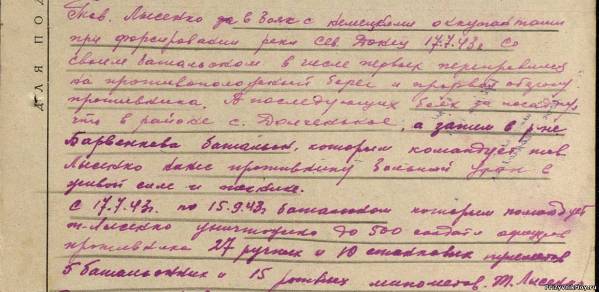 Тов. Лысенко за в боях с немецкими оккупантами
при форсировании реки Сев Донец 17.7.43г со
своим батальоном в числе первых переправился
на противоположный берег и прорвал оборону
противника. А последующих боях за
что в районе с. Долгенькое, а затем в р-не
Барвенкова батальон, которым командует тов
Лысенко нанес противнику большой урон в
живой силе и технике.
С 17.7.43г. по 15.9.43г батальоном которым командует
т. Лысенко уничтожено до 500 солдат офицеров
противника 27 ручных и 10 станковых пулеметов
5 батальонных и 15 ротных минометов. Т. Лысенко
ДЛЯ ПО